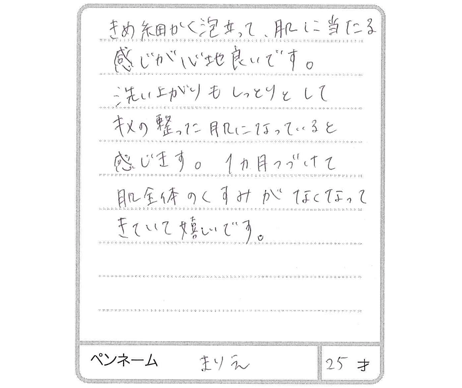 きめ細かく泡立って、肌に当たる
感じが心地良いです。
洗い上がりもしっとりとして
キメの整った肌になっていると
感じます。1ヵ月つづけて
肌全体のくすみがなくなって
きていて嬉しいです。
ペンネーム まりえ 25才